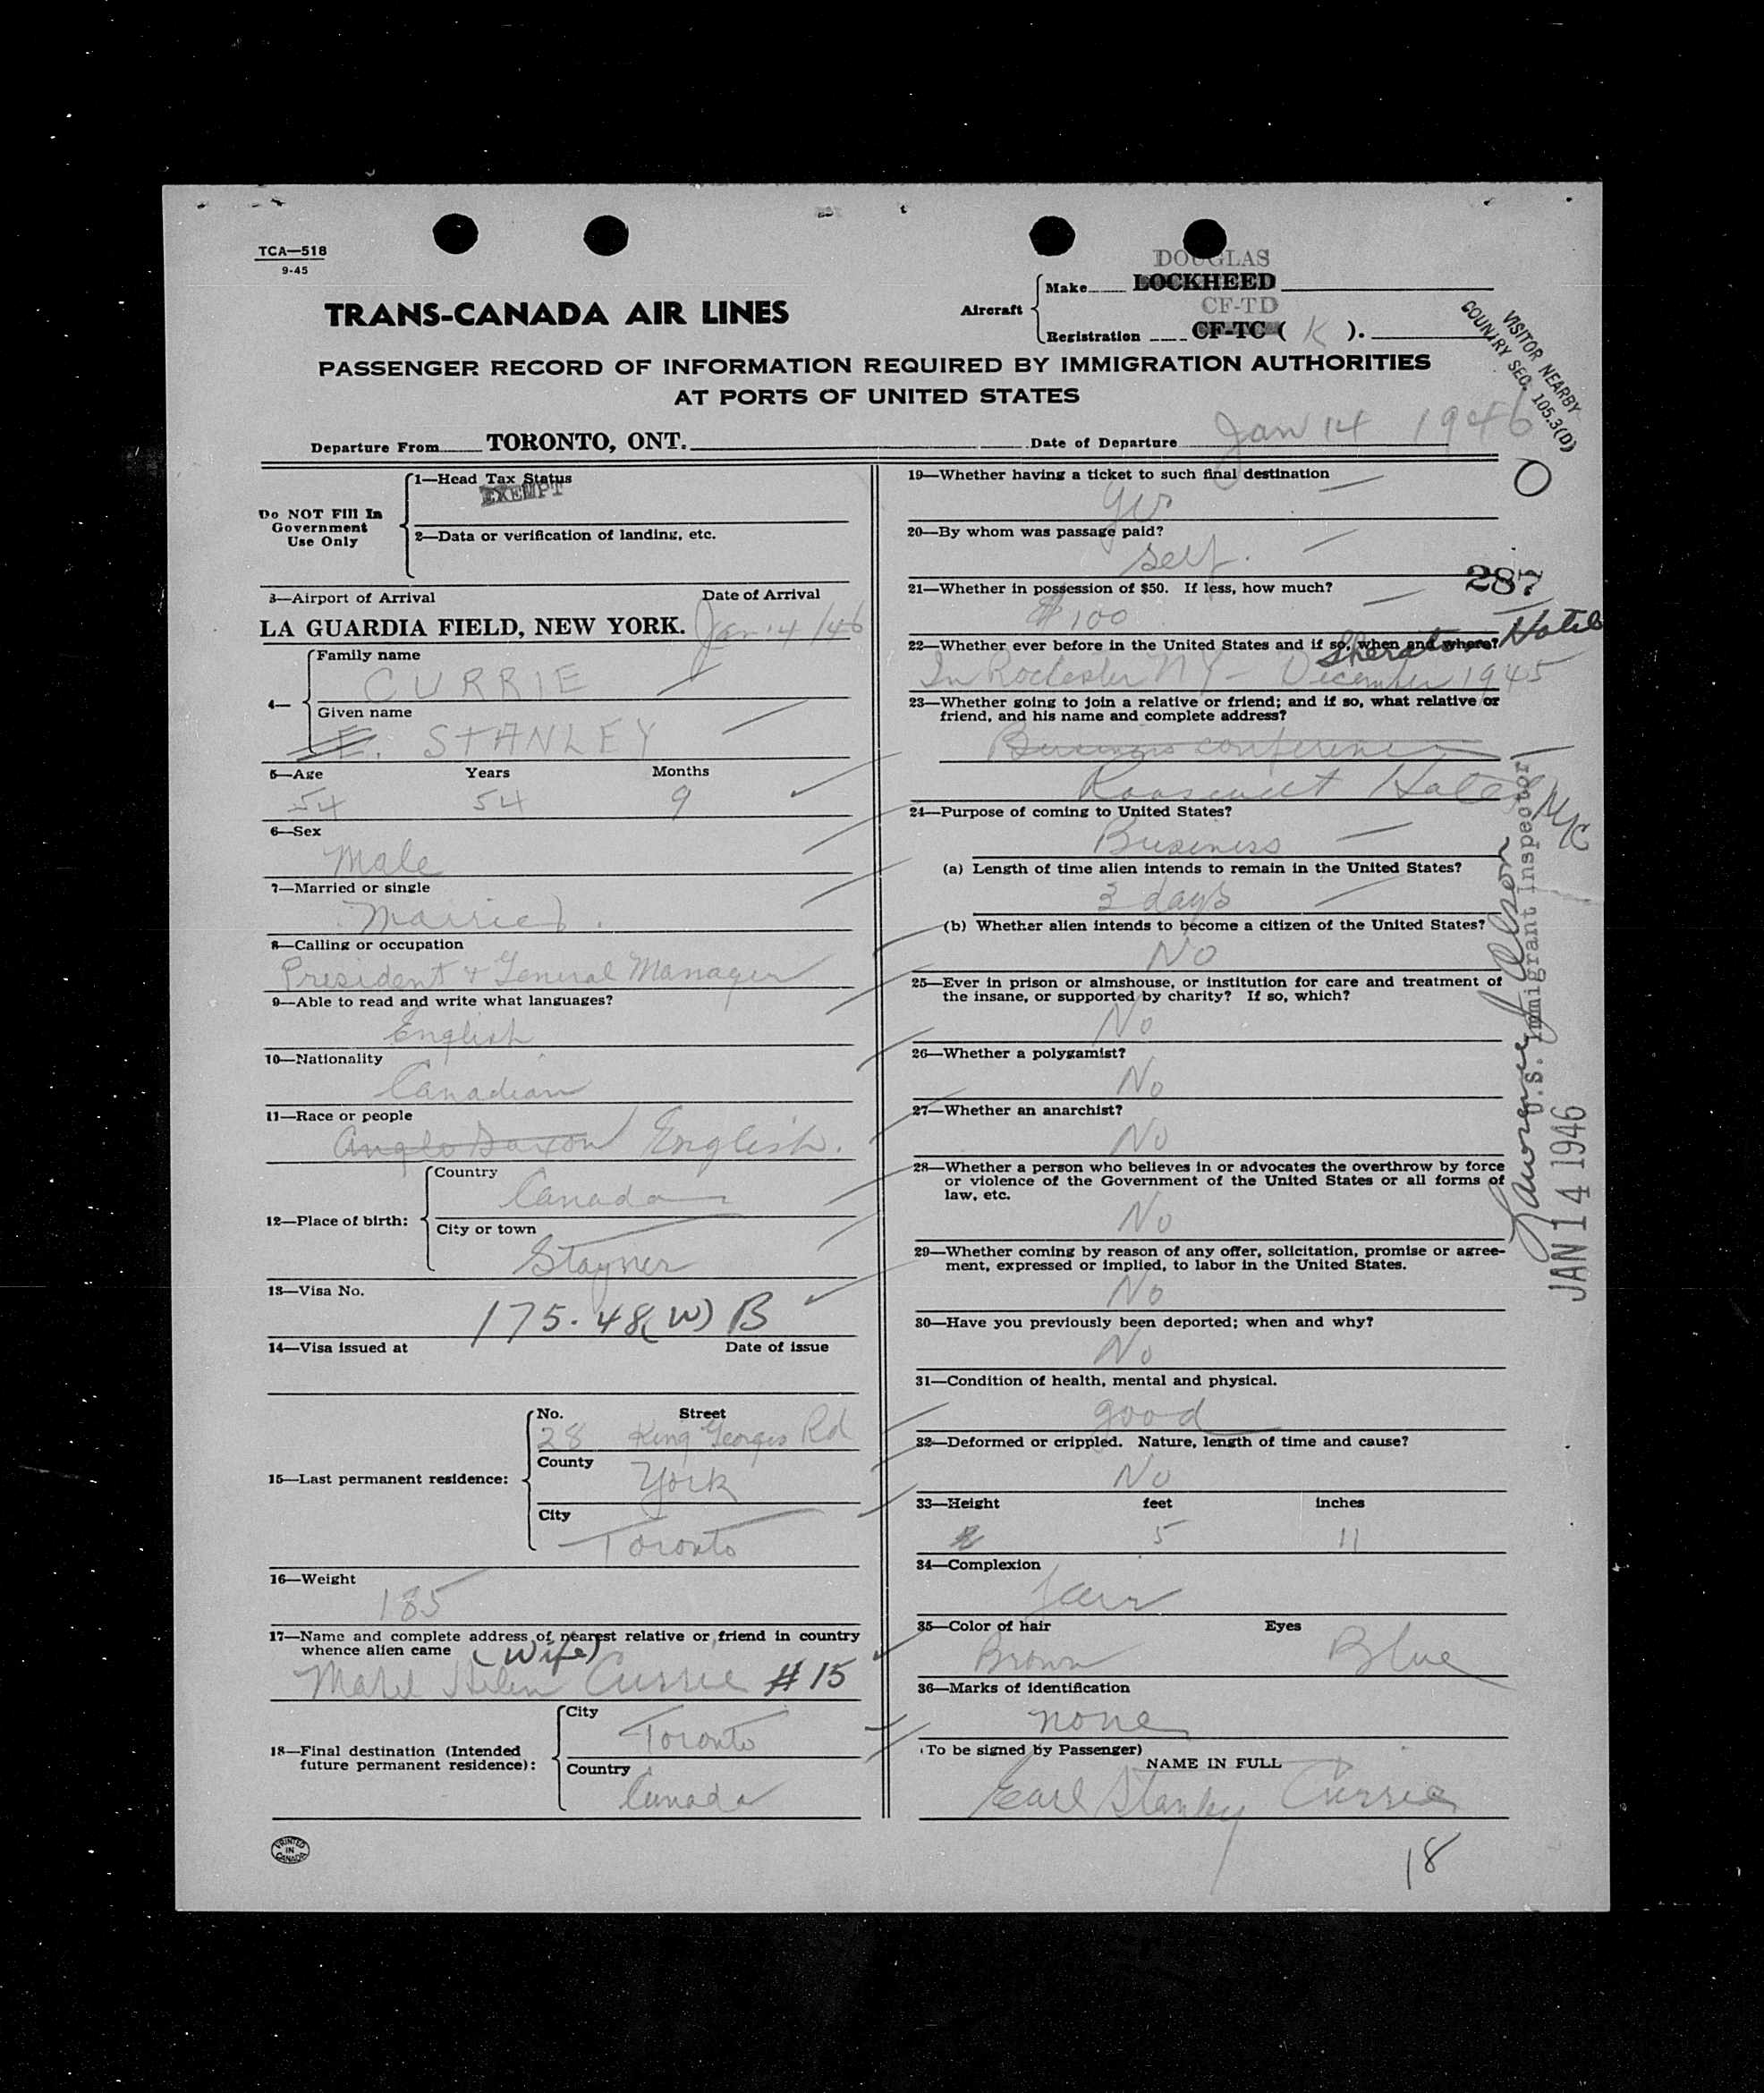 TCA—518
9-45
TRANS-CANADA AIR LINES
Aircraft
Make DOUGLAS LOCKHEED
Registration CF-TD CF-TC ( K ).
VISITOR NEARBY
COUNTRY SEC. 105.3(D)
PASSENGER RECORD OF INFORMATION REQUIRED BY IMMIGRATION AUTHORITIES
AT PORTS OF UNITED STATES
Departure From TORONTO, ONT. Date of Departure Jan 14 1946
Do NOT Fill In
Government
Use Only
1—Head Tax Status
EXEMPT
2—Data or verification of landing, etc.
3—Airport of Arrival Date of Arrival
LA GUARDIA FIELD, NEW YORK. Jan 14/46
4—
Family name
CURRIE
Given name
E. STANLEY
5—Age Years Months
54 54 9
6—Sex
Male
7—Married or single
Married.
8—Calling or occupation
President & General Manager
9—Able to read and write what languages?
English
10—Nationality
Canadian
11—Race or people
Anglo Saxon English.
12—Place of birth:
Country
Canada
City or town
Stayner
13—Visa No.
175.48(W) B
14—Visa issued at Date of issue
15—Last permanent residence:
No. Street
28 King Georges Rd
County
York
City
Toronto
16—Weight
185
17—Name and complete address of nearest relative or friend in country
whence alien came (Wife)
Mabel Helen Currie #15
18—Final destination (Intended
future permanent residence):
City
Toronto
Country
Canada
PRINTED
IN
CANADA
19—Whether having a ticket to such final destination
yes
20—By whom was passage paid?
self.
21—Whether in possession of $50. If less, how much? 287
$100
22—Whether ever before in the United States and if so, when and where?
Sheraton Hotel
In Rochester NY - December 1945
23—Whether going to join a relative or friend; and if so, what relative or
friend, and his name and complete address?
Business conference
Roosevelt Hotel NYC
24—Purpose of coming to United States?
Business
(a) Length of time alien intends to remain in the United States?
3 days
(b) Whether alien intends to become a citizen of the United States?
No
25—Ever in prison or almshouse, or institution for care and treatment of
the insane, or supported by charity? If so, which?
No
26—Whether a polygamist?
No
27—Whether an anarchist?
No
28—Whether a person who believes in or advocates the overthrow by force
or violence of the Government of the United States or all forms of
law, etc.
No
29—Whether coming by reason of any offer, solicitation, promise or agree-
ment, expressed or implied, to labor in the United States.
No
30—Have you previously been deported; when and why?
No
31—Condition of health, mental and physical.
good
32—Deformed or crippled. Nature, length of time and cause?
No
33—Height feet inches
5 11
34—Complexion
fair
35—Color of hair Eyes
Brown Blue
36—Marks of identification
none
(To be signed by Passenger)
NAME IN FULL
Earl Stanley Currie
18
U.S. Immigrant Inspector
JAN 14 1946